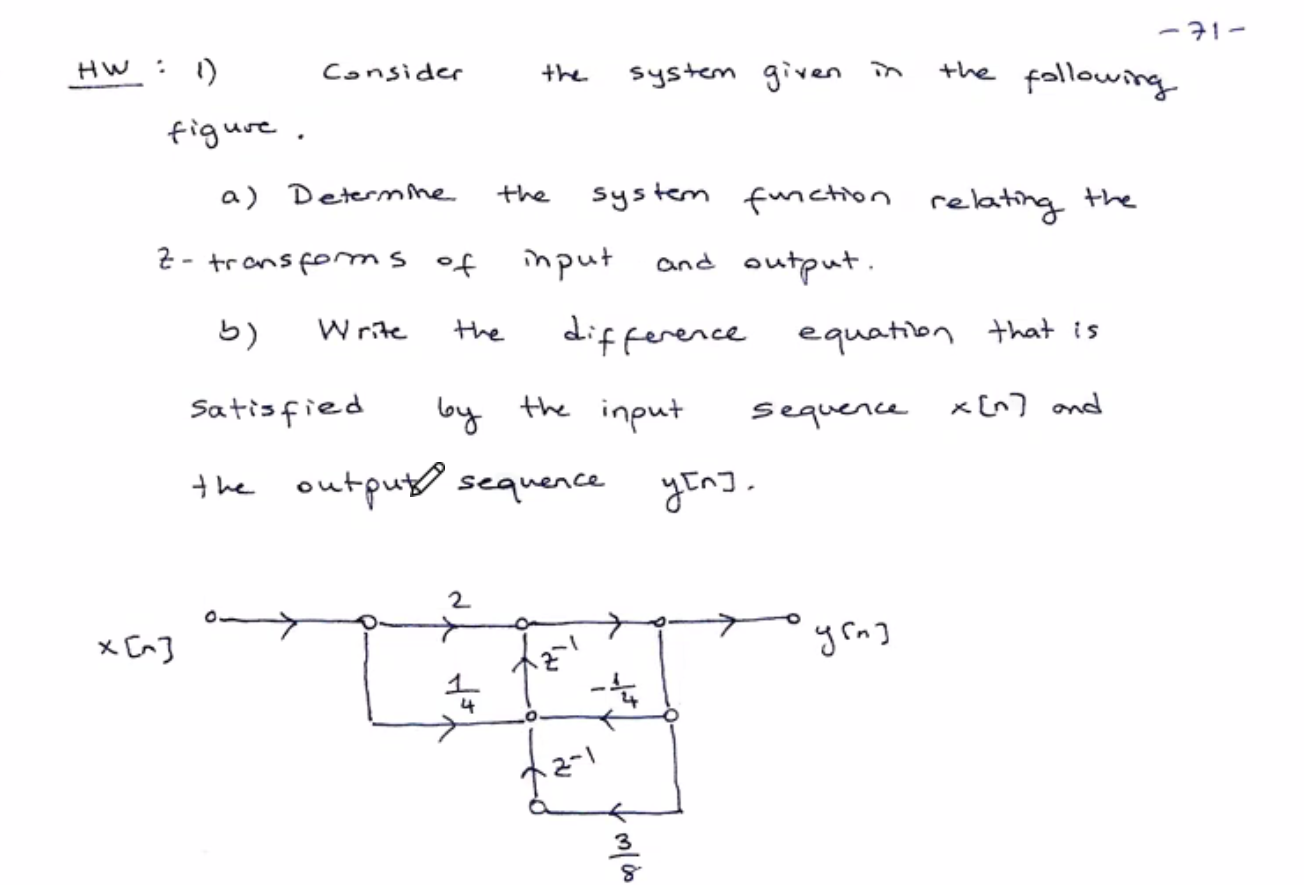 -71-
HW : 1) Consider the system given in the following
figure.
a) Determine the system function relating the
z-transforms of input and output.
b) Write the difference equation that is
satisfied by the input sequence x[n] and
the output sequence y[n].
2
x[n] y[n]
z⁻¹
1/4 -1/4
z⁻¹
3/8